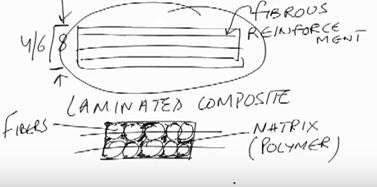 FIBROUS
REINFORCE
MENT
4/6/8
LAMINATED COMPOSITE
FIBERS
MATRIX
(POLYMER)